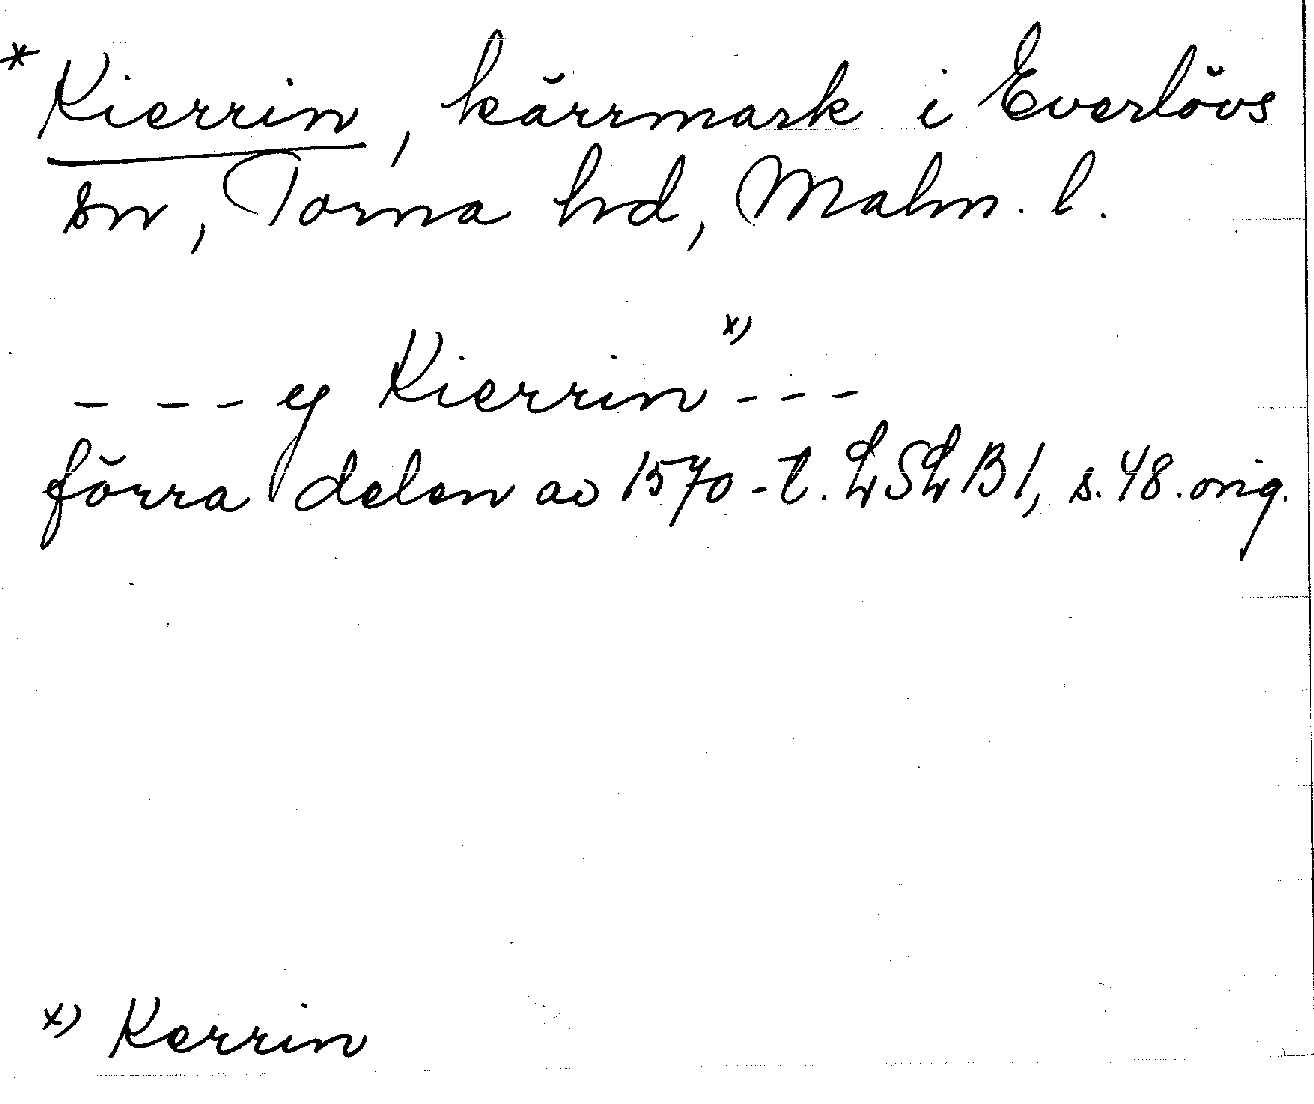 * Kierrin, kärrmark i Everlövs
sn, Torna hd, Malm. l.
- - - ej Kierrin x) - - -
förra delen av 1570-t. LSLB1, s. 48. orig.
x) Kerrin